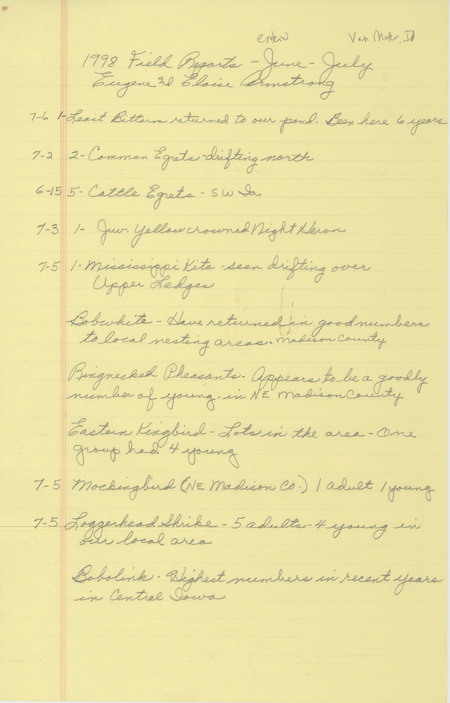 entered Van Meter, IA
1998 Field Reports - June - July
Eugene and Eloise Armstrong
7-6 1- Least Bittern returned to our pond. Been here 6 years
7-2 2- Common Egrets - drifting north
6-15 5- Cattle Egrets - SW Ia
7-3 1- Juv. Yellowcrowned Night Heron
7-5 1- Mississippi Kite - seen drifting over
Upper Ledges
Bobwhite - Have returned in good numbers
to local nesting areas. Madison County
Ringnecked Pheasants. Appears to be a goodly
number of young. in NE Madison County
Eastern Kingbird - Lots in the area - One
group had 4 young
7-5 Mockingbird (NE Madison Co.) 1 adult 1 young
7-5 Loggerhead Shrike - 5 adults - 4 young in
our local area
Bobolink - Highest numbers in recent years
in Central Iowa